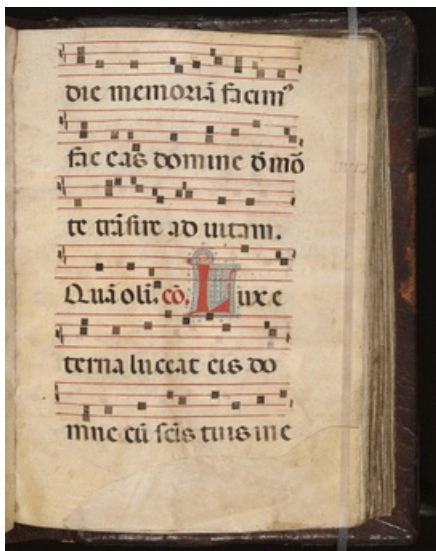 die memoriā facim⁹
fac eas domine d̄ mō
te trāsire ad uitam.
Quā oli. cō. Lux e
terna luceat eis do
mine cū scīs tuis in e